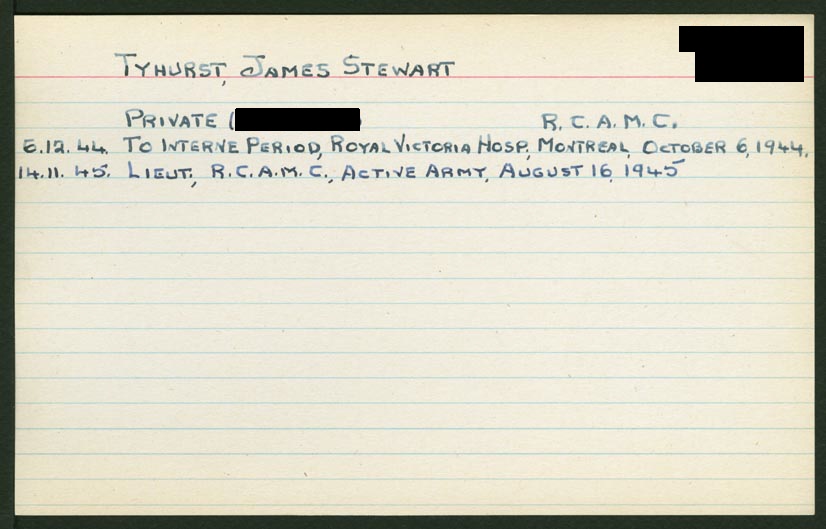 TYHURST, JAMES STEWART
PRIVATE ( ) R.C.A.M.C.
6.12.44. TO INTERNE PERIOD, ROYAL VICTORIA HOSP., MONTREAL, OCTOBER 6, 1944.
14.11.45. LIEUT., R.C.A.M.C., ACTIVE ARMY, AUGUST 16, 1945